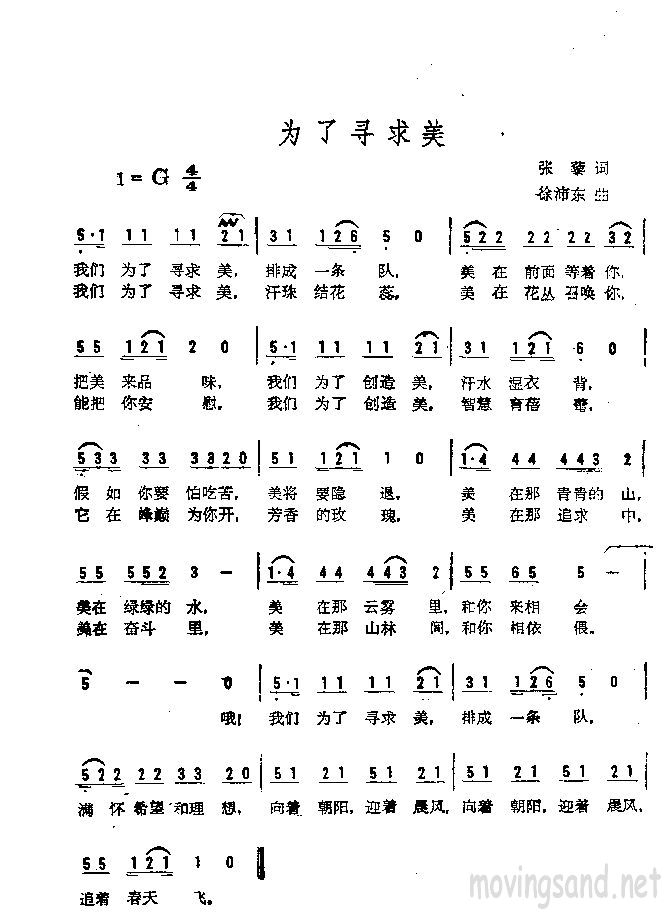 为了寻求美
1=G 4/4
张藜 词
徐沛东 曲
5·1 11 11 21 | 31 126 5 0 | 522 22 22 32 |
我们 为了 寻求 美, 排成 一条 队, 美 在 前面 等着 你,
我们 为了 寻求 美, 汗珠 结花 蕊, 美 在 花丛 召唤 你,
55 121 2 0 | 5·1 11 11 21 | 31 121 6 0 |
把美 来品 味, 我们 为了 创造 美, 汗水 湿衣 背,
能把 你安 慰, 我们 为了 创造 美, 智慧 育蓓 蕾,
533 33 3820 | 51 121 1 0 | 1·4 44 443 2 |
假如 你要 怕吃苦, 美将 要隐 退, 美 在那 青青的 山,
它在 峰巅 为你开, 芳香 的玫 瑰, 美 在那 追求 中,
55 552 3 - | 1·4 44 443 2 | 55 65 5 -
美在 绿绿的 水, 美 在那 云雾 里, 和你 来相 会
美在 奋斗 里, 美 在那 山林 间, 和你 相依 偎。
5 - - 0 | 5·1 11 11 21 | 31 126 5 0 |
哦! 我们 为了 寻求 美, 排成 一条 队,
522 22 33 20 | 51 21 51 21 | 51 21 51 21 |
满怀 希望 和理 想, 向着 朝阳, 迎着 晨风, 向着 朝阳, 迎着 晨风,
55 121 1 0 ‖
追着 春天 飞。
movingsand.net